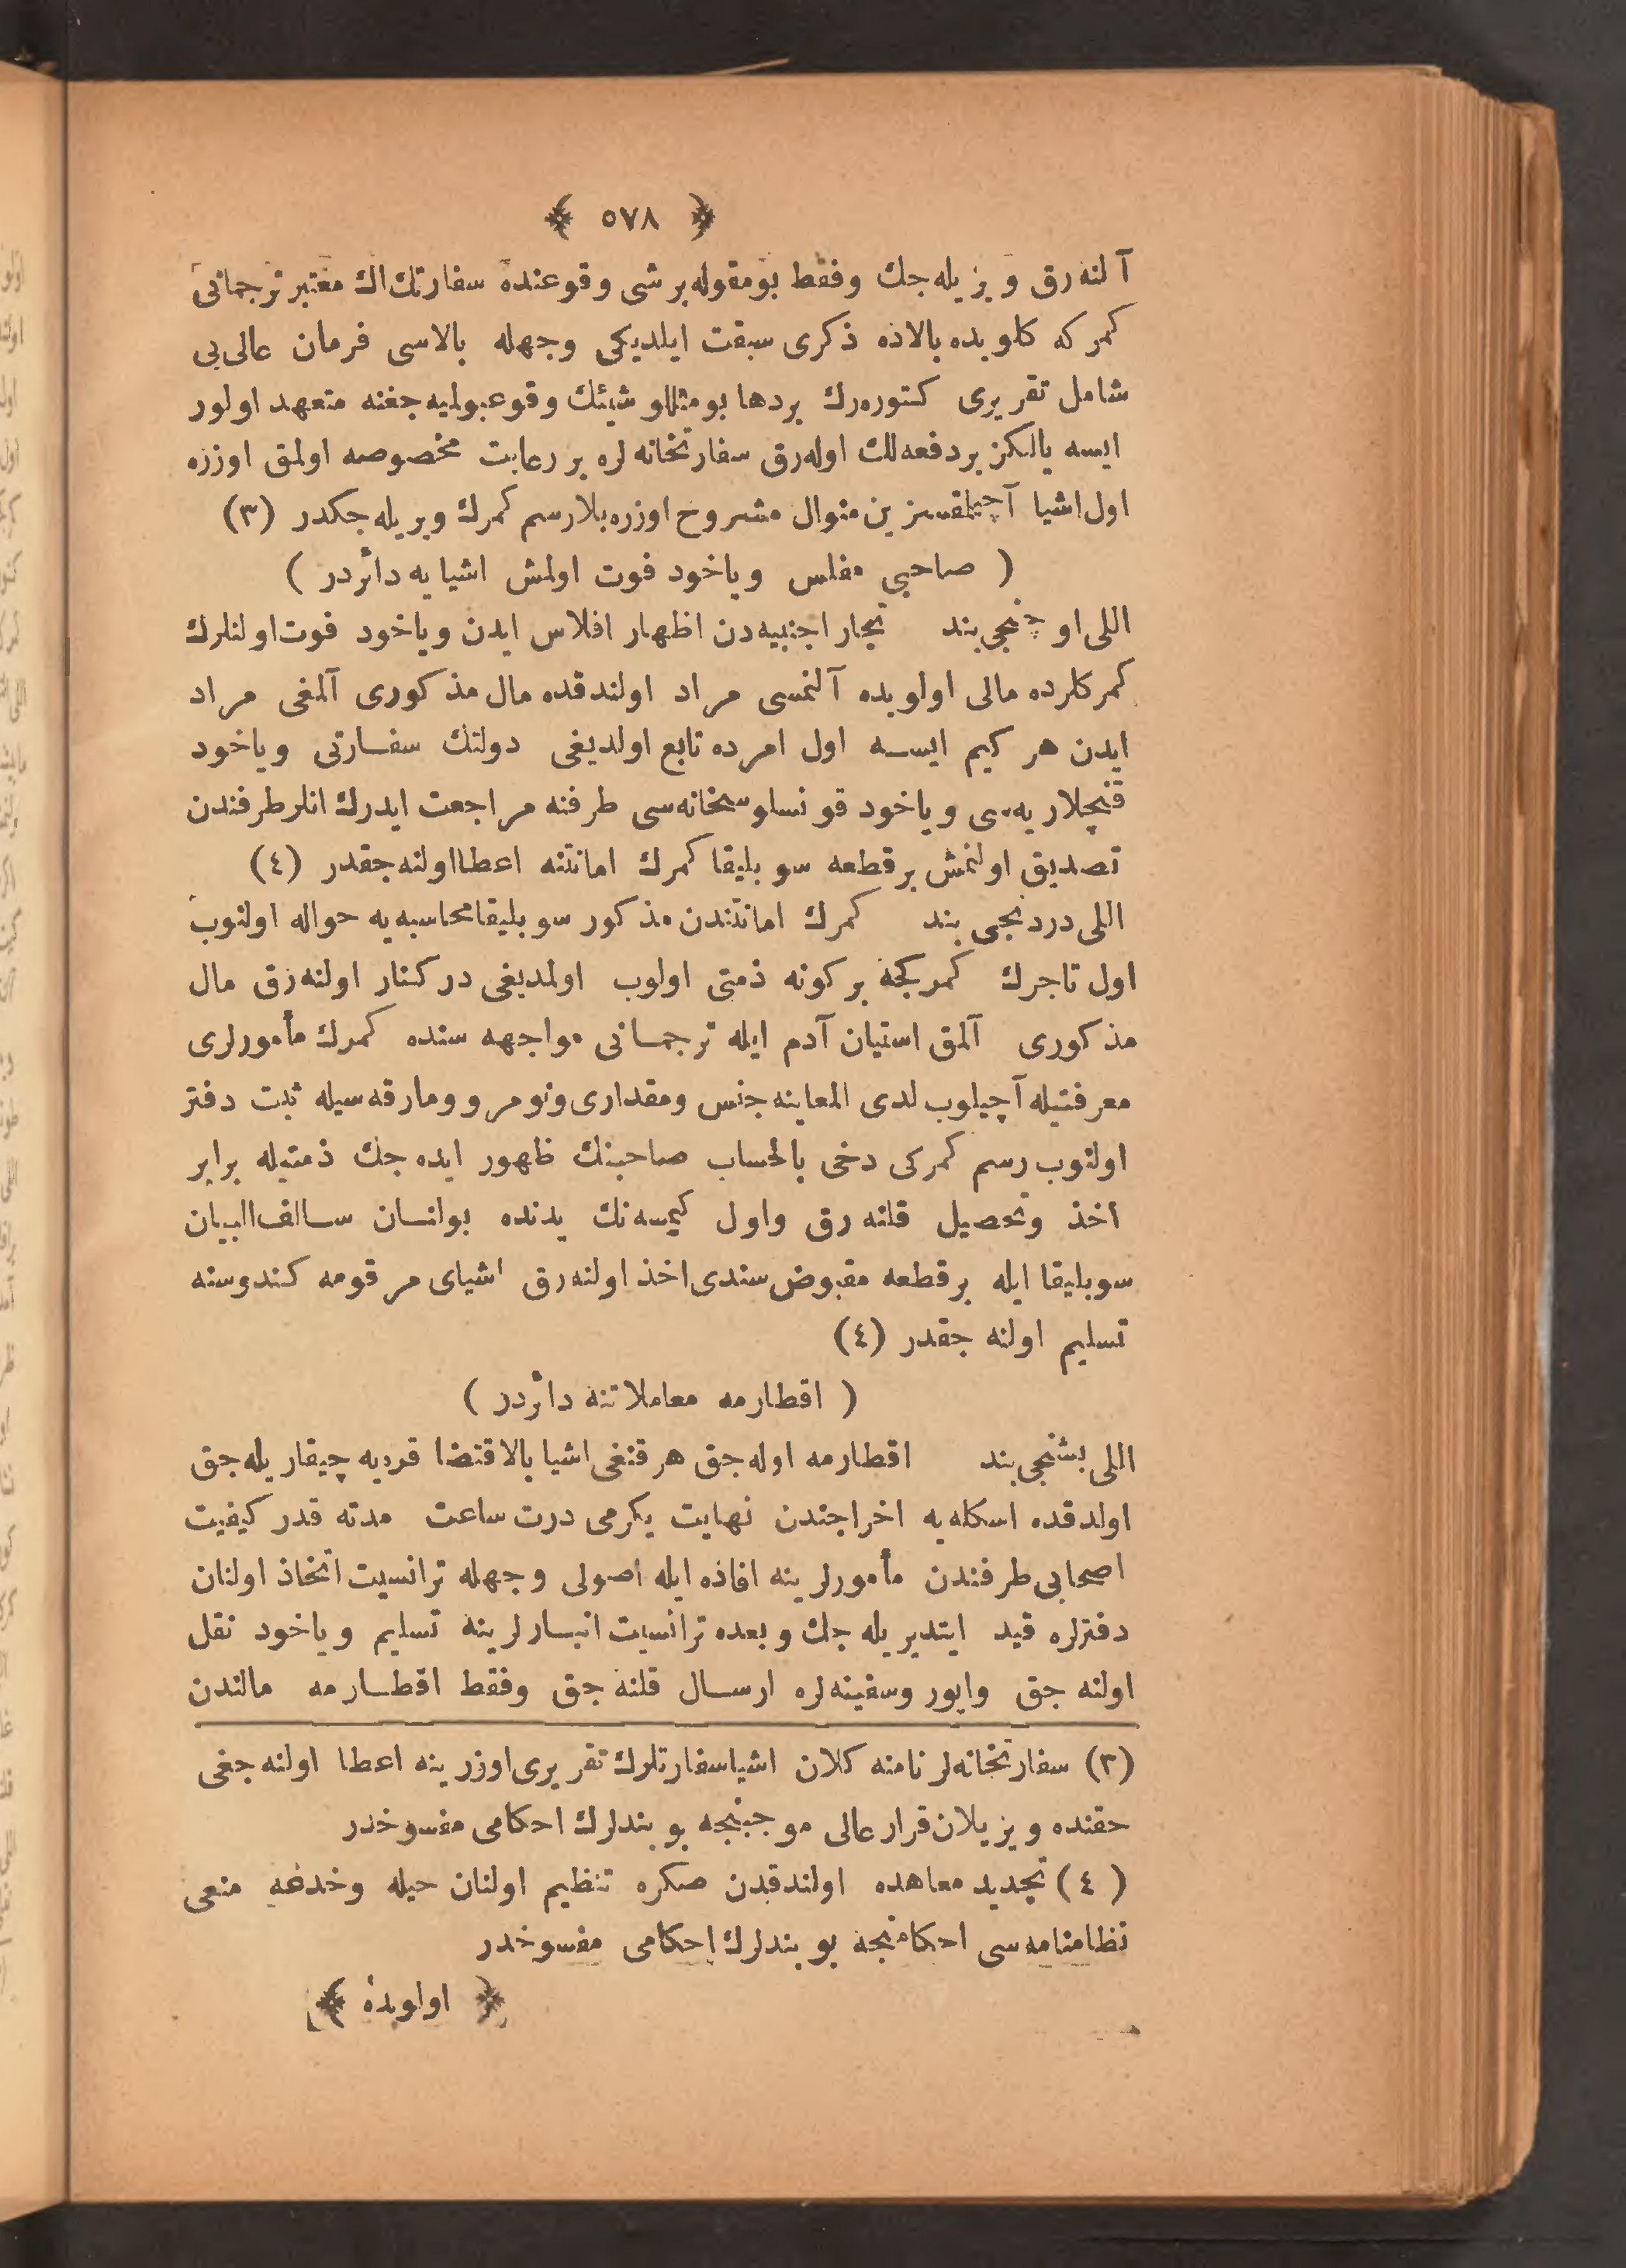 ﴿ ٥٧٨ ﴾
آلنه‌رق ويريله‌جك وفقط بومقوله برشى وقوعنده سفارتك اك معتبر ترجمانى
كمركه كلوبده بالاده ذكرى سبقت ايلديكى وجهله بالاسى فرمان عالى‌يى
شامل تقريرى كتوره‌رك بردها بومثللو شيئك وقوعبولميه‌جغنه متعهد اولور
ايسه يالكز بردفعه‌لك اوله‌رق سفارتخانه‌لره بر رعايت مخصوصه اولمق اوزره
اول اشيا آچلمقسزين منوال مشروح اوزره بلارسم كمرك ويريله‌جكدر (٣)
( صاحبى مفلس وياخود فوت اولمش اشيايه دائردر )
اللى اوچنجى بند تجار اجنبيه‌دن اظهار افلاس ايدن وياخود فوت اولنلرك
كمركلرده مالى اولوبده آلنمسى مراد اولندقده مال مذكورى آلمغى مراد
ايدن هر كيم ايسه اول امرده تابع اولديغى دولتك سفارتى وياخود
قنچلاريه‌سى وياخود قونسلوسخانه‌سى طرفنه مراجعت ايدرك انلر طرفندن
تصديق اولنمش بر قطعه سوپليقا كمرك امانتنه اعطا اولنه‌جقدر (٤)
اللى دردنجى بند كمرك امانتندن مذكور سوپليقا محاسبه‌يه حواله اولنوب
اول تاجرك كمركجه بر كونه ذمتى اولوب اولمديغى دركنار اولنه‌رق مال
مذكورى آلمق استيان آدم ايله ترجمانى مواجهه سنده كمرك مأمورلرى
معرفتيله آچيلوب لدى المعاينه جنس ومقدارى ونومرو ومارقه‌سيله ثبت دفتر
اولنوب رسم كمركى دخى بالحساب صاحبنك ظهور ايده‌جك ذمتيله برابر
اخذ وتحصيل قلنه‌رق واول كيمسه‌نك يدنده بولنان سالف‌البيان
سوپليقا ايله بر قطعه مقبوض سندى اخذ اولنه‌رق اشياى مرقومه كندوسنه
تسليم اولنه جقدر (٤)
( اقطارمه معاملاتنه دائردر )
اللى بشنجى بند اقطارمه اوله‌جق هر قنغى اشيا بالاقتضا قره‌يه چيقاريله‌جق
اولدقده اسكله‌يه اخراجندن نهايت يكرمى درت ساعت مدته قدر كيفيت
اصحابى طرفندن مأمورلرينه افاده ايله اصولى وجهله ترانسيت اتخاذ اولنان
دفترلره قيد ايتديريله‌جك وبعده ترانسيت انبارلرينه تسليم وياخود نقل
اولنه جق واپور وسفينه‌لره ارسال قلنه جق وفقط اقطارمه مالندن
(٣) سفارتخانه‌لر نامنه كلان اشيا سفارتلرك تقريرى اوزرينه اعطا اولنه جغى
حقنده ويريلان قرار عالى موجبنجه بو بندلرك احكامى مفسوخدر
(٤) تجديد معاهده اولندقدن صكره تنظيم اولنان حيله وخدعه منعى
نظامنامه‌سى احكامنجه بو بندلرك احكامى مفسوخدر
﴿ اولوبده ﴾